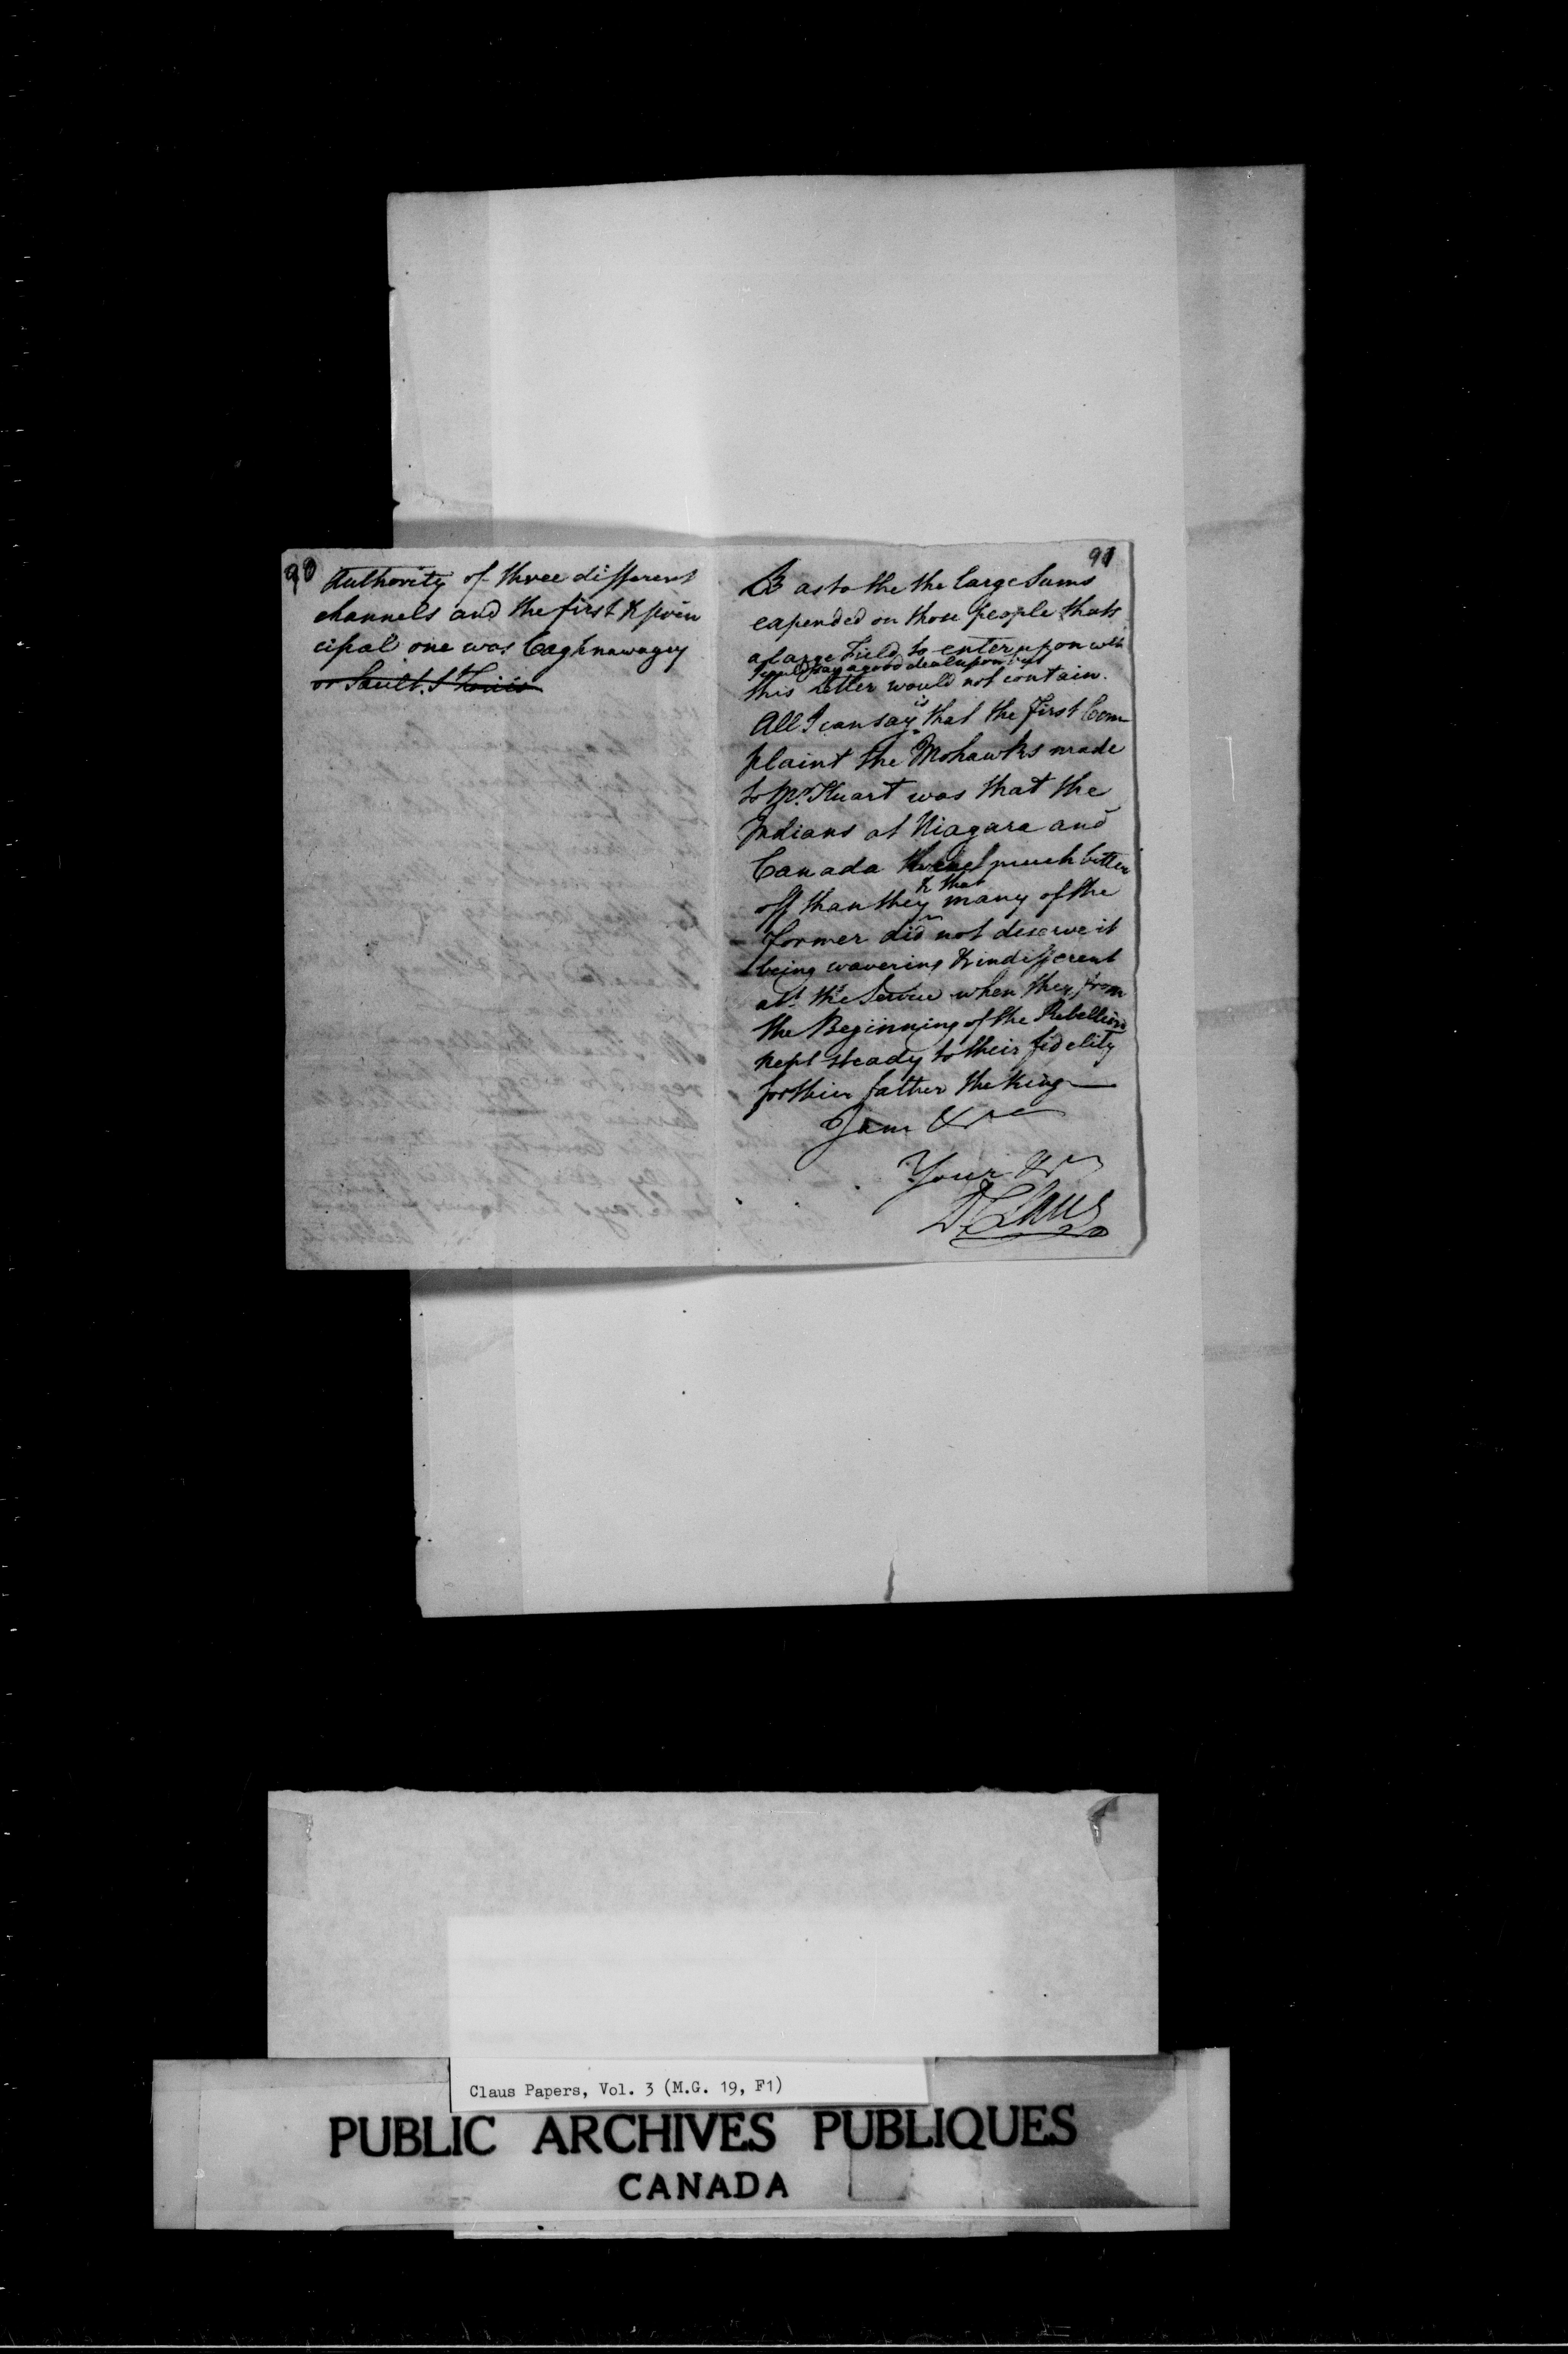 90
Authority of three different
channels and the first & prin
cipal one was Caghnawagey
or Sault S Louis
91
As to the the large Sums
expended on those people thats
a large Field to enter upon wch
I could say a good deal upon but
this letter would not contain.
All I can say is that the first Com
plaint the Mohawks made
to Mr. Stuart was that the
Indians at Niagara and
Canada much better
off than they & that many of the
former did not deserve it
being wavering & indifferent
abt. the Service when they from
the Beginning of the Rebellion
kept steady to their fidelity
for their father the King
I am &c
Your &c
D Claus
Claus Papers, Vol. 3 (M.G. 19, F1)
PUBLIC ARCHIVES PUBLIQUES
CANADA